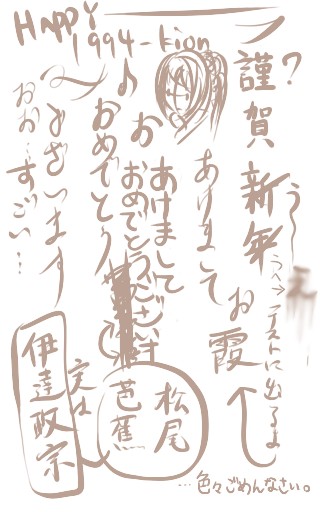 Happy
1994-kion
謹賀新年?
う〜
うへ→テストに出るよ
あけまして
お
霞
♪お
あけまして
おめでとうござい
おめでとう
ございます
おお…すごい…
松尾
芭蕉
実は
伊達政宗
…色々ごめんなさい。